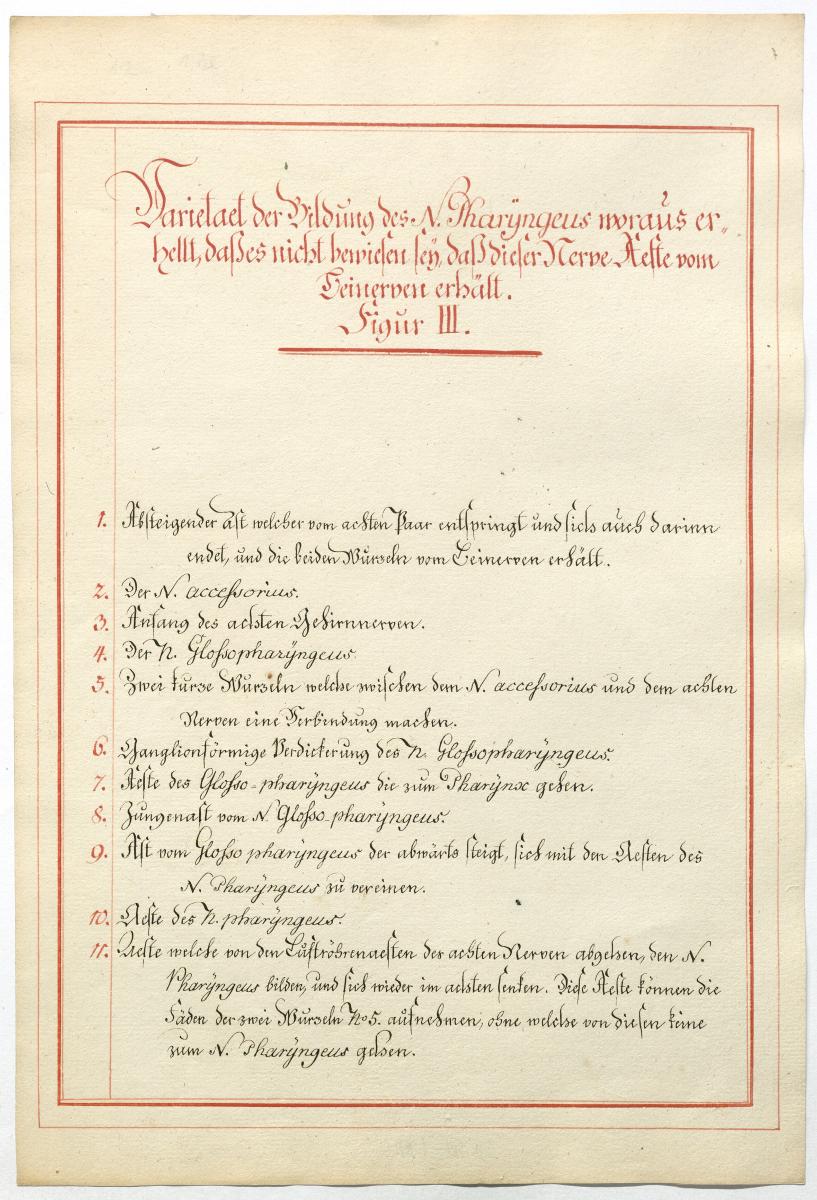 Varietaet der Bildung des N. Pharÿngeus woraus er„
hellt, daß es nicht bewiesen seÿ, daß dieser Nerve Aeste vom
Beinerven erhält.
Figur III.
1. Absteigender Ast welcher vom achten Paar entspringt und sich auch darinn
endet, und die beiden Wurzeln vom Beinerven erhält.
2. Der N. accessorius.
3. Anfang des achten Gehirnnerven.
4. Der N. Glossopharÿngeus
5. Zwei kurze Wurzeln welche zwischen dem N. accessorius und dem achten
Nerven eine Verbindung machen.
6. Ganglionförmige Verdickerung des N. Glossopharÿngeus.
7. Aeste des Glosso-pharÿngeus die zum Pharÿnx gehen.
8. Zungenast vom N. Glosso-pharÿngeus.
9. Ast vom Glosso pharÿngeus der abwärts steigt, sich mit den Aesten des
N. Pharÿngeus zu vereinen.
10. Aeste des N. pharÿngeus.
11. Aeste welche von den Luftröhrenaesten der achten Nerven abgehen, den N.
Pharÿngeus bilden, und sich wieder im achten senken. Diese Aeste können die
Fäden der zwei Wurzeln No 5. aufnehmen, ohne welche von diesen keine
zum N. Pharÿngeus gehen.